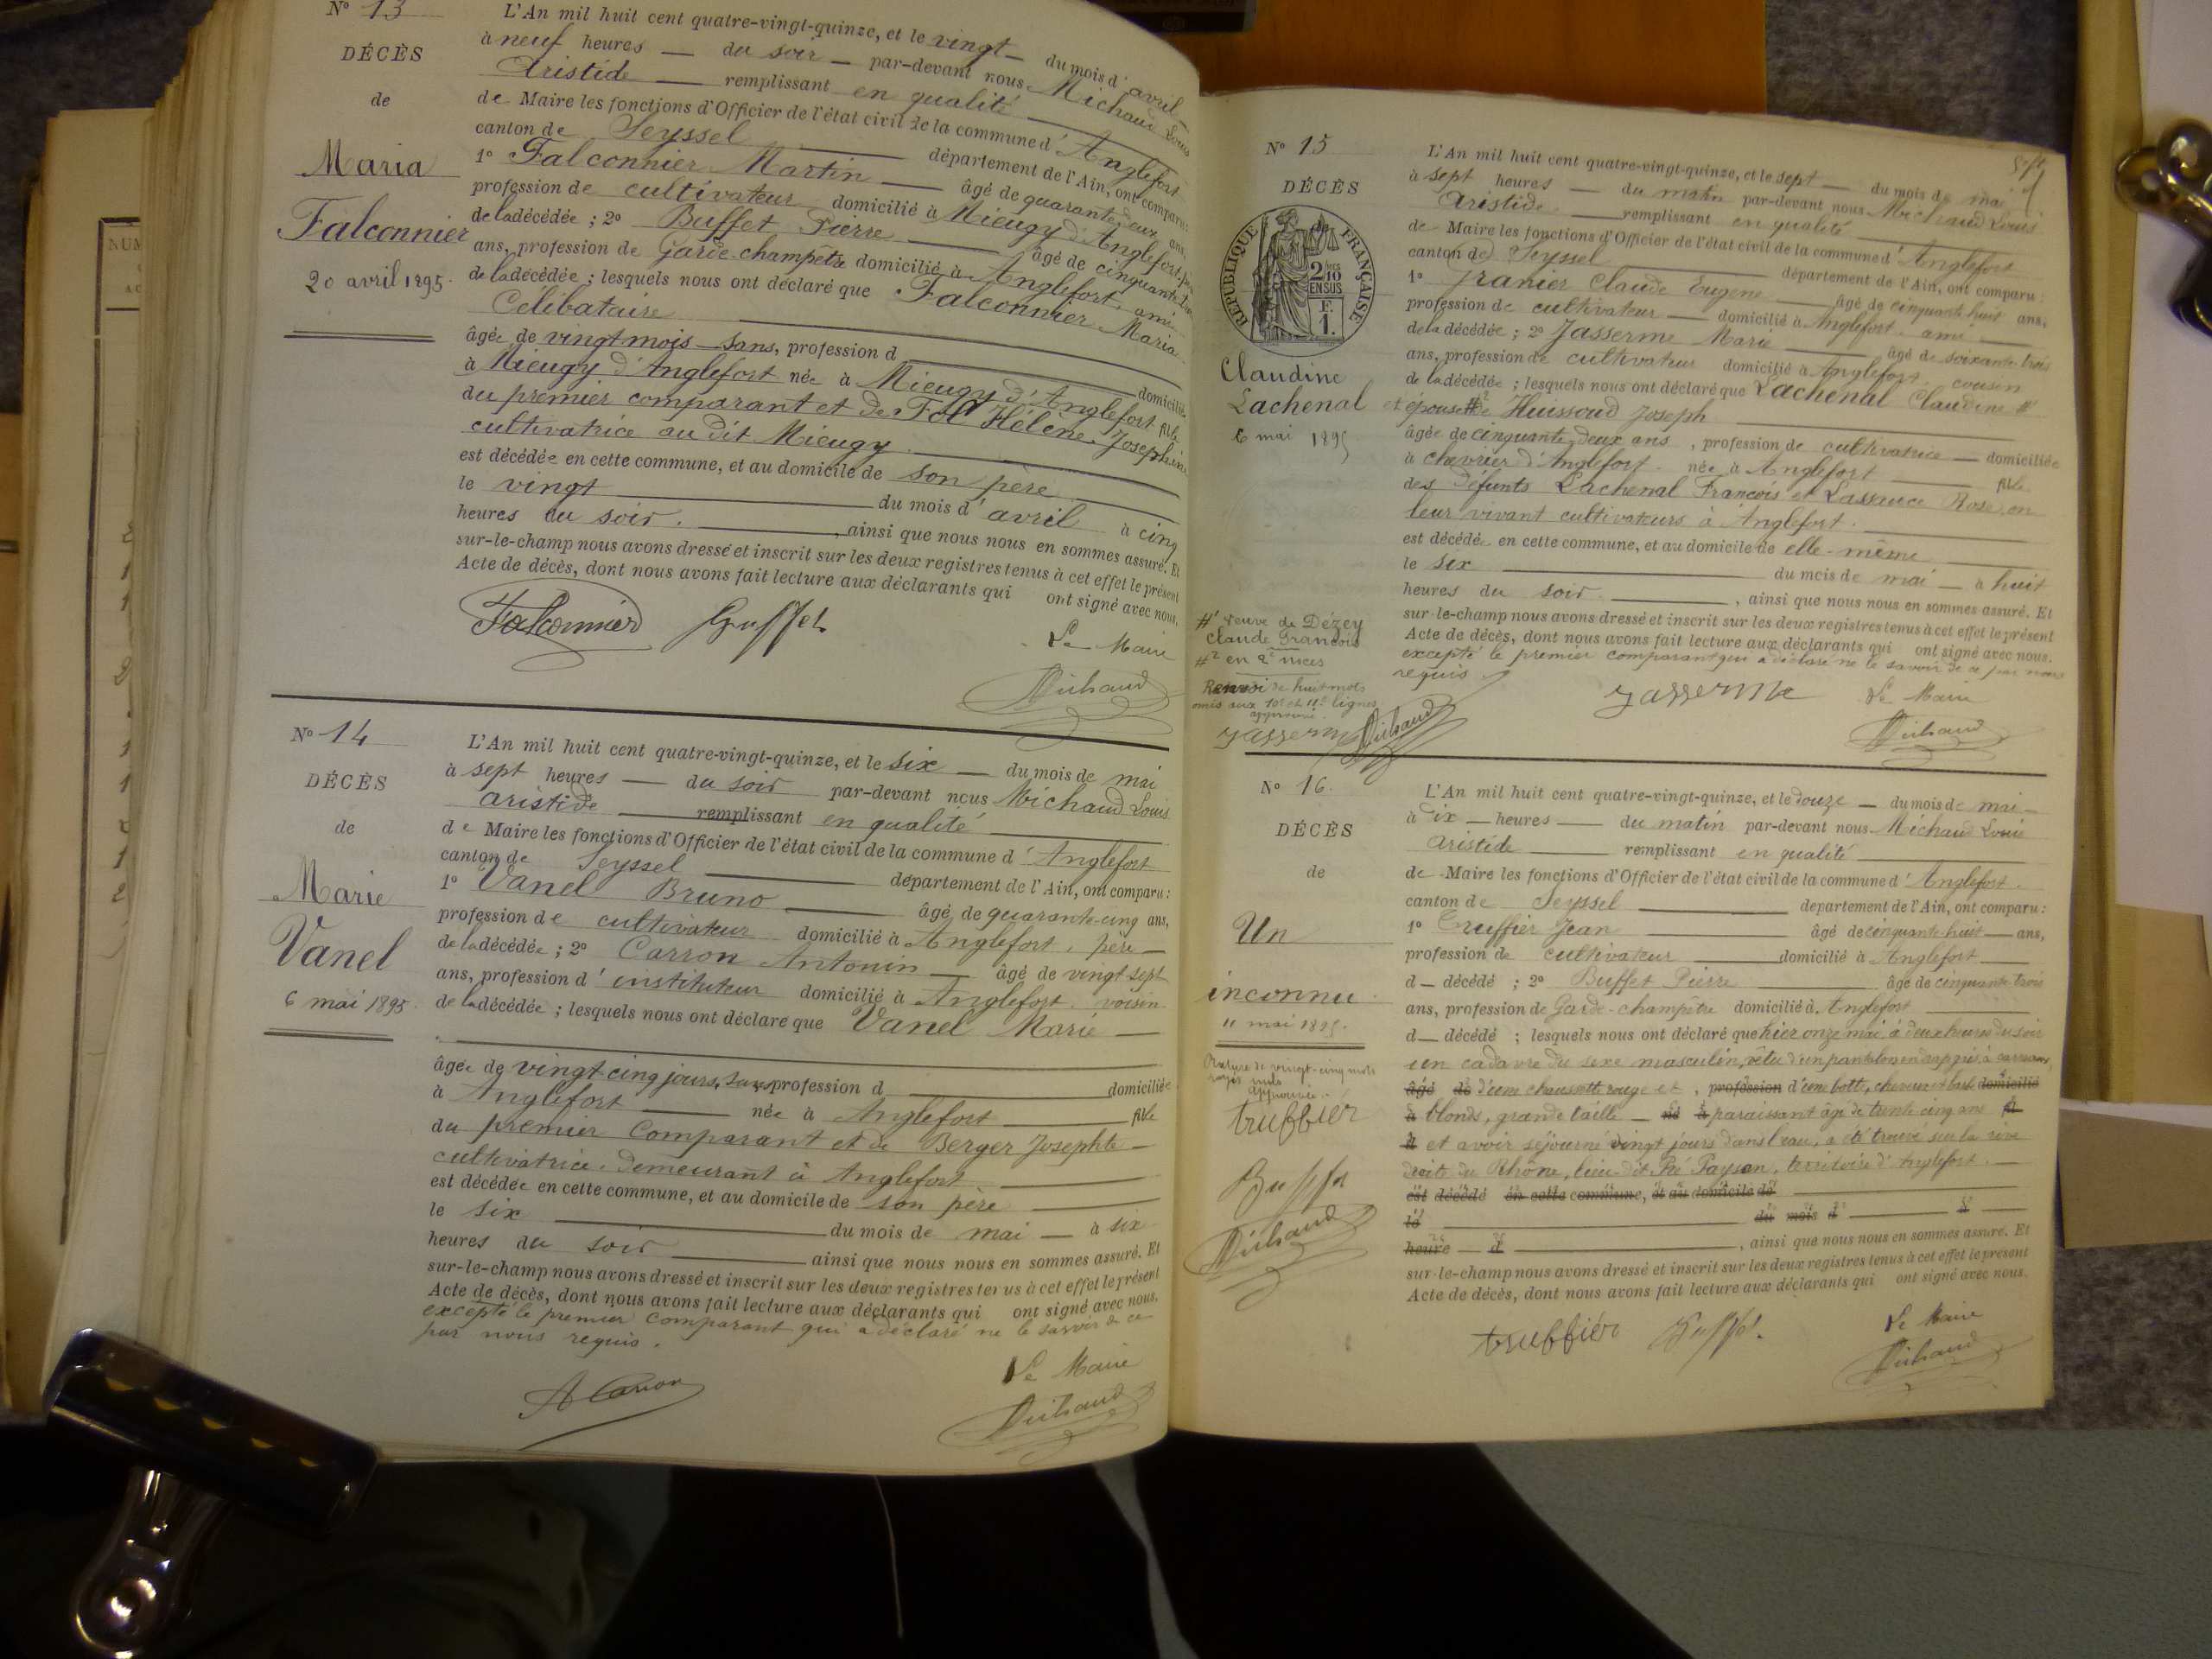 N° 13
DÉCÈS
de
Maria
Falconnier
20 avril 1895.
L'An mil huit cent quatre-vingt-quinze, et le vingt du mois d'avril
à neuf heures du soir par-devant nous Michaud Louis
Aristide remplissant en qualité
de Maire les fonctions d'Officier de l'état civil de la commune d'Anglefort
canton de Seyssel département de l'Ain, ont comparu:
1° Falconnier Martin âgé de quarante deux ans,
profession de cultivateur domicilié à Mieugy d'Anglefort, père
de la décédée ; 2° Buffet Pierre âgé de cinquante trois
ans, profession de Garde-champêtre domicilié à Anglefort, ami
de la décédée ; lesquels nous ont déclaré que Falconnier Maria
Célibataire
âgée de vingt mois sans, profession d domiciliée
à Mieugy d'Anglefort née à Mieugy d'Anglefort fille
du premier comparant et de Fol Hélène Josephine
cultivatrice au dit Mieugy.
est décédée en cette commune, et au domicile de son père
le vingt du mois d'avril à cinq
heures du soir. , ainsi que nous nous en sommes assuré. Et
sur-le-champ nous avons dressé et inscrit sur les deux registres tenus à cet effet le présent
Acte de décès, dont nous avons fait lecture aux déclarants qui ont signé avec nous.
Falconnier Buffet
Le Maire
Michaud
N° 14
DÉCÈS
de
Marie
Vanel
6 mai 1895.
L'An mil huit cent quatre-vingt-quinze, et le six du mois de mai
à sept heures du soir par-devant nous Michaud Louis
aristide remplissant en qualité
de Maire les fonctions d'Officier de l'état civil de la commune d'Anglefort
canton de Seyssel département de l'Ain, ont comparu:
1° Vanel Bruno âgé de quarante-cinq ans,
profession de cultivateur domicilié à Anglefort, père
de la décédée ; 2° Carron Antonin âgé de vingt sept
ans, profession d'instituteur domicilié à Anglefort. voisin
de la décédée ; lesquels nous ont déclaré que Vanel Marie
âgée de vingt-cinq jours, sans profession d domiciliée
à Anglefort née à Anglefort fille
du premier Comparant et de Berger Josephte
cultivatrice. demeurant à Anglefort
est décédée en cette commune, et au domicile de son père
le six du mois de mai à six
heures du soir ainsi que nous nous en sommes assuré. Et
sur-le-champ nous avons dressé et inscrit sur les deux registres tenus à cet effet le présent
Acte de décès, dont nous avons fait lecture aux déclarants qui ont signé avec nous.
excepté le premier comparant qui a déclaré ne le savoir de ce
par nous requis.
A Carron
Le Maire
Michaud
N° 15
DÉCÈS
RÉPUBLIQUE FRANÇAISE
2/10 EN SUS
F. 1.
Claudine
Lachenal
6 mai 1895
L'An mil huit cent quatre-vingt-quinze, et le sept du mois de mai
à sept heures du matin par-devant nous Michaud Louis
Aristide remplissant en qualité
de Maire les fonctions d'Officier de l'état civil de la commune d'Anglefort
canton de Seyssel département de l'Ain, ont comparu:
1° Granier Claude Eugène âgé de cinquante huit ans,
profession de cultivateur domicilié à Anglefort ami
de la décédée ; 2° Jasserme Marie âgé de soixante-trois
ans, profession de cultivateur domicilié à Anglefort. cousin
de la décédée ; lesquels nous ont déclaré que Lachenal Claudine #1
et épouse #2 de Huissoud Joseph
âgée de cinquante deux ans, profession de cultivatrice domiciliée
à chevrier d'Anglefort. née à Anglefort fille
des défunts Lachenal François et Rose en
leur vivant cultivateurs à Anglefort.
est décédée en cette commune, et au domicile de elle-même
le six du mois de mai à huit
heures du soir. , ainsi que nous nous en sommes assuré. Et
sur-le-champ nous avons dressé et inscrit sur les deux registres tenus à cet effet le présent
Acte de décès, dont nous avons fait lecture aux déclarants qui ont signé avec nous.
excepté le premier comparant qui a déclaré ne le savoir de ce par nous
requis.
Jasserme Le Maire
Michaud
#1 veuve de Dézey
Claude François
#2 en 2es noces
Renvoi de huit mots
omis aux 10e et 11e lignes
approuvé.
Jasserme Michaud
N° 16.
DÉCÈS
de
Un
inconnu
11 mai 1895.
L'An mil huit cent quatre-vingt-quinze, et le douze du mois de mai
à dix heures du matin par-devant nous Michaud Louis
Aristide remplissant en qualité
de Maire les fonctions d'Officier de l'état civil de la commune d'Anglefort.
canton de Seyssel département de l'Ain, ont comparu:
1° Truffier Jean âgé de cinquante-huit ans,
profession de cultivateur domicilié à Anglefort
d décédé ; 2° Buffet Pierre âgé de cinquante trois
ans, profession de Garde-champêtre domicilié à Anglefort
d décédé ; lesquels nous ont déclaré que hier onze mai à deux heures du soir
un cadavre du sexe masculin, vêtu d'un pantalon en drap gris à carreaux,
âgé de d'une chaussette rouge et , profession d'une botte, cheveux et barbe domicilié
à blonds, grande taille né à paraissant âgé de trente cinq ans
et avoir séjourné vingt jours dans l'eau, a été trouvé sur la rive
droite du Rhône, lieu dit Pré Paysan, territoire d'Anglefort.
est décédé en cette commune, et au domicile de
le du mois d à
heure d , ainsi que nous nous en sommes assuré. Et
sur-le-champ nous avons dressé et inscrit sur les deux registres tenus à cet effet le présent
Acte de décès, dont nous avons fait lecture aux déclarants qui ont signé avec nous.
truffier Buffet.
Le Maire
Michaud
Rature de vingt-cinq mots
rayés nuls
approuvée.
truffier
Buffet
Michaud